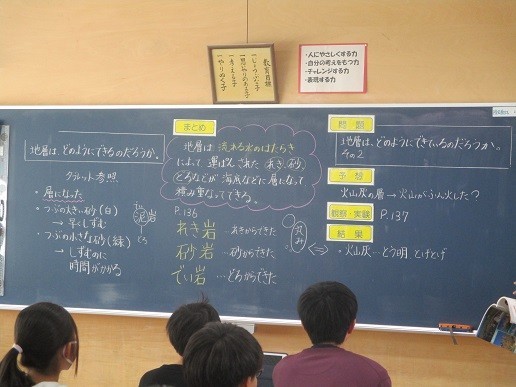 教育目標
一 じょうぶな子
一 思いやりのある子
一 考える子
一 やりぬく子
・人にやさしくする力
・自分の考えをもつ力
・チャレンジする力
・表現する力
地層は、どのようにできるのだろうか。
タブレット参照
・層になった
・つぶの大きい砂(白)
→早くしずむ
・つぶの小さな砂(緑)
→しずむのに
時間がかかる
泥岩
どろ
まとめ
地層は流れる水のはたらき
によって運ばんされた れき、砂、
どろなどが海底などに層になって
積み重なってできる。
P.136
れき岩 …れきからできた
砂岩 …砂からできた
でい岩 …どろからできた
丸み
問題
地層は、どのようにできているのだろうか。
その2
予想
火山灰の層→火山がふん火した?
観察・実験 P.137
結果
・火山灰…とう明、とげとげ